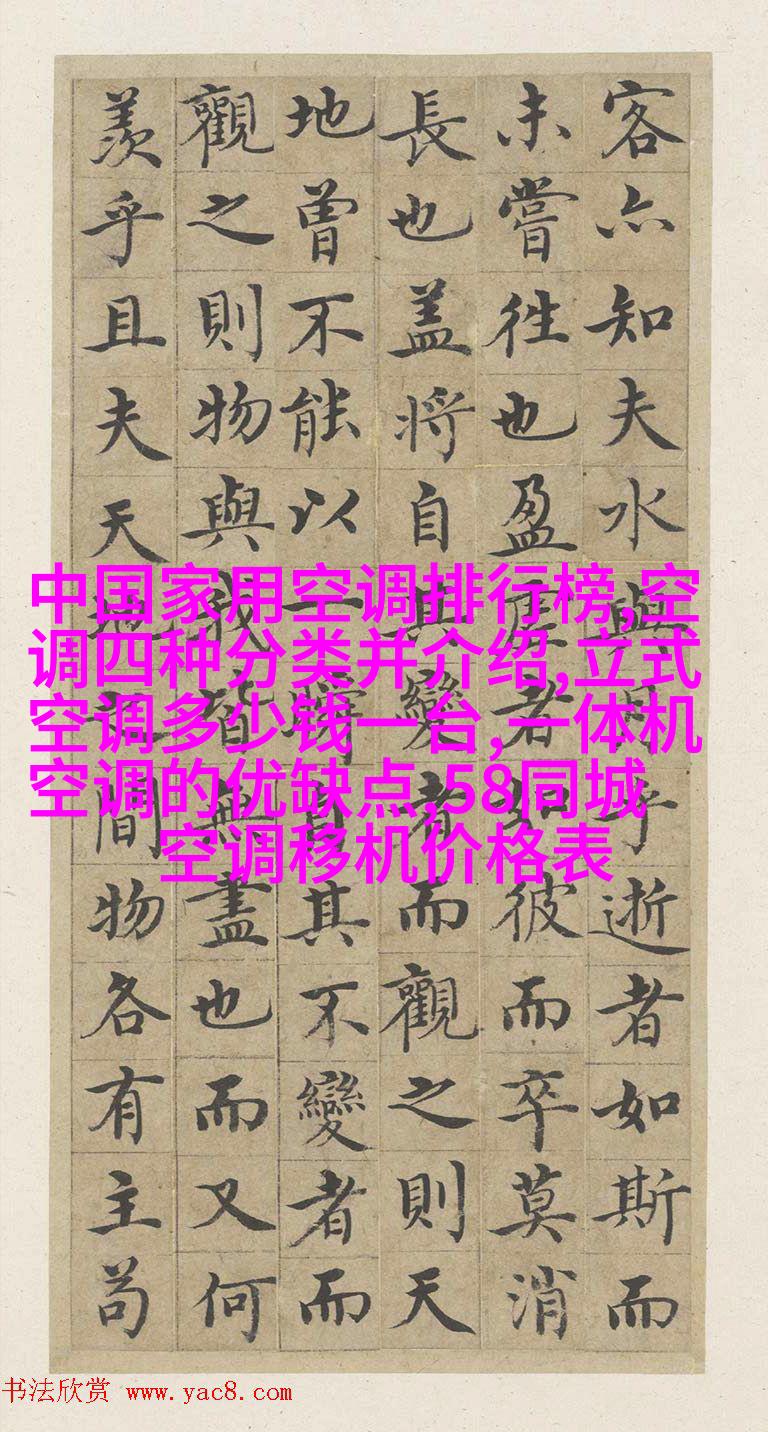 客亦知夫水與月乎逝者如斯而
未嘗往也盈虛者如彼而卒莫消
長也盖將自其變者而觀之則天
地曾不能以一瞬自其不變者而
觀之則物與我皆無盡也而又何
羨乎且夫天地之間物各有主苟
中国家用空调排行榜,空
调四种分类并介绍,立式
空调多少钱一台,一体机
空调的优缺点,58同城
空调移机价格表
书法欣赏 www.yac8.com